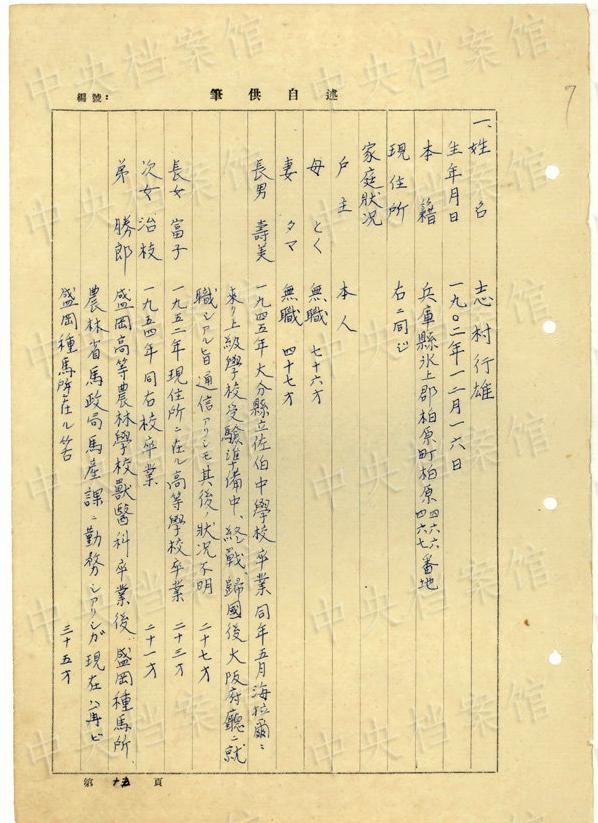 筆供自述
編號:
7
一、姓名 志村行雄
生年月日 一九〇二年一二月一六日
本籍 兵庫縣氷上郡柏原町柏原四六六四六七番地
現住所 右ニ同じ
家庭狀況
戶主 本人
母 とく 無職 七十六才
妻 タマ 無職 四十七才
長男 壽美 一九四五年大分縣立佐伯中學校卒業同年五月海拉爾ニ
來リ上級學校受驗準備中、終戰、歸國後大阪府廳ニ就
職シアル旨通信アリシモ其後ノ狀況不明 二十七才
長女 富子 一九五二年現住所ニ在ル高等學校卒業 二十三才
次女 治枝 一九五四年同右校卒業 二十一才
弟 勝郎 盛岡高等農林學校獸醫科卒業後、盛岡種馬所、
農林省馬政局馬產課ニ勤務シアリシガ現在ハ再ビ
盛岡種馬所在ル筈 三十五才
第十五頁
中央档案馆